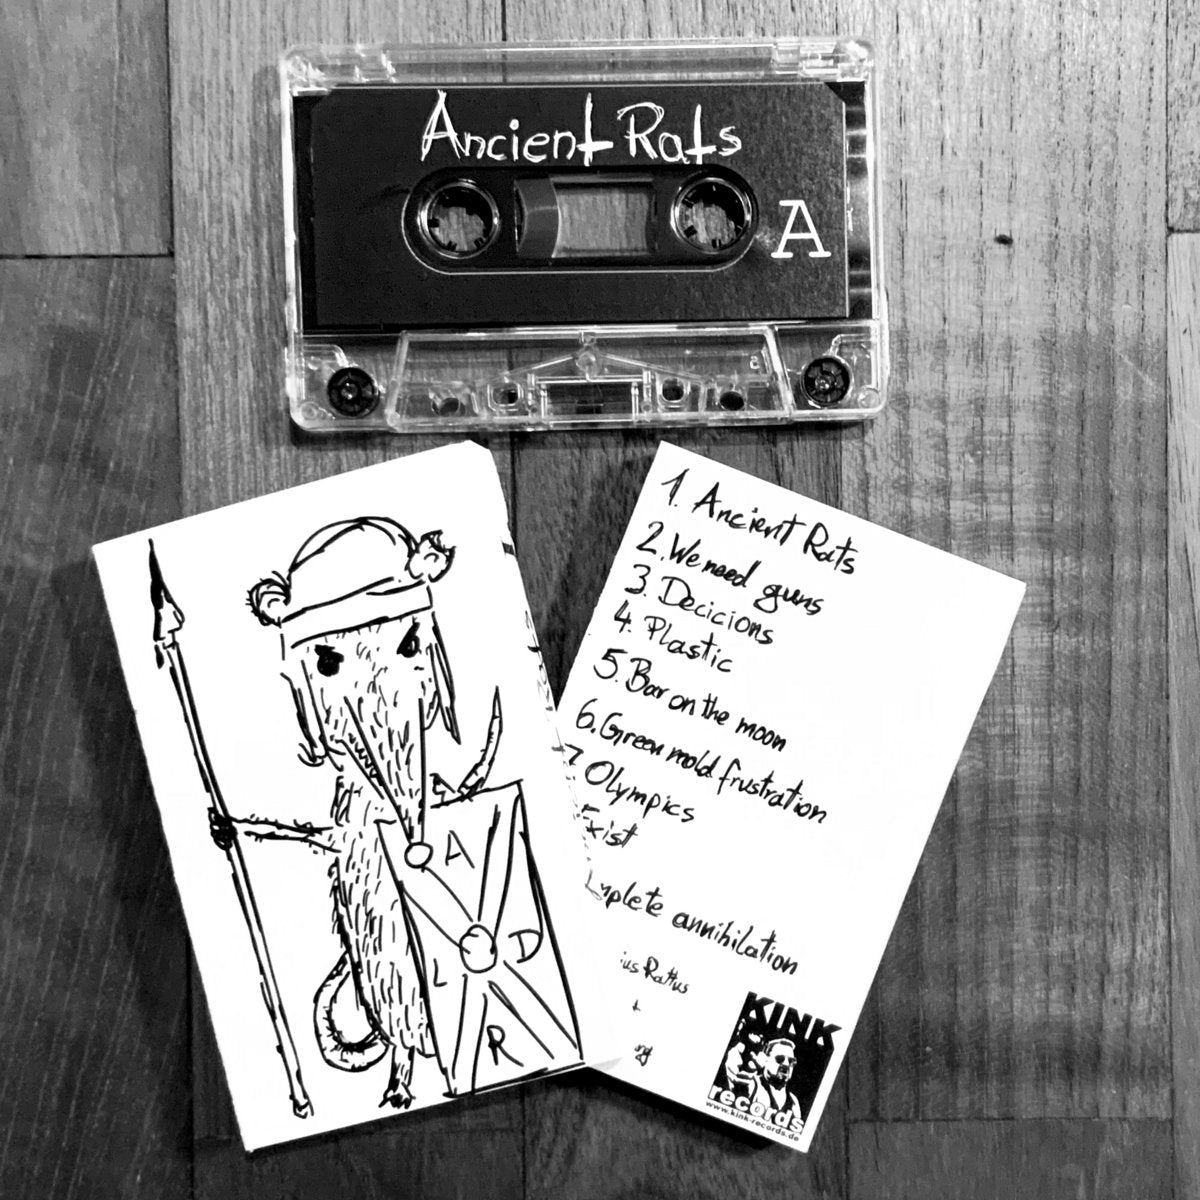 Ancient Rats
A
1. Ancient Rats
2. We need guns
3. Decicions
4. Plastic
5. Bar on the moon
6. Green mold frustration
7. Olympics
Exist
mplete annihilation
ius Rattus
A
D
L
R
KINK
records
www.kink-records.de